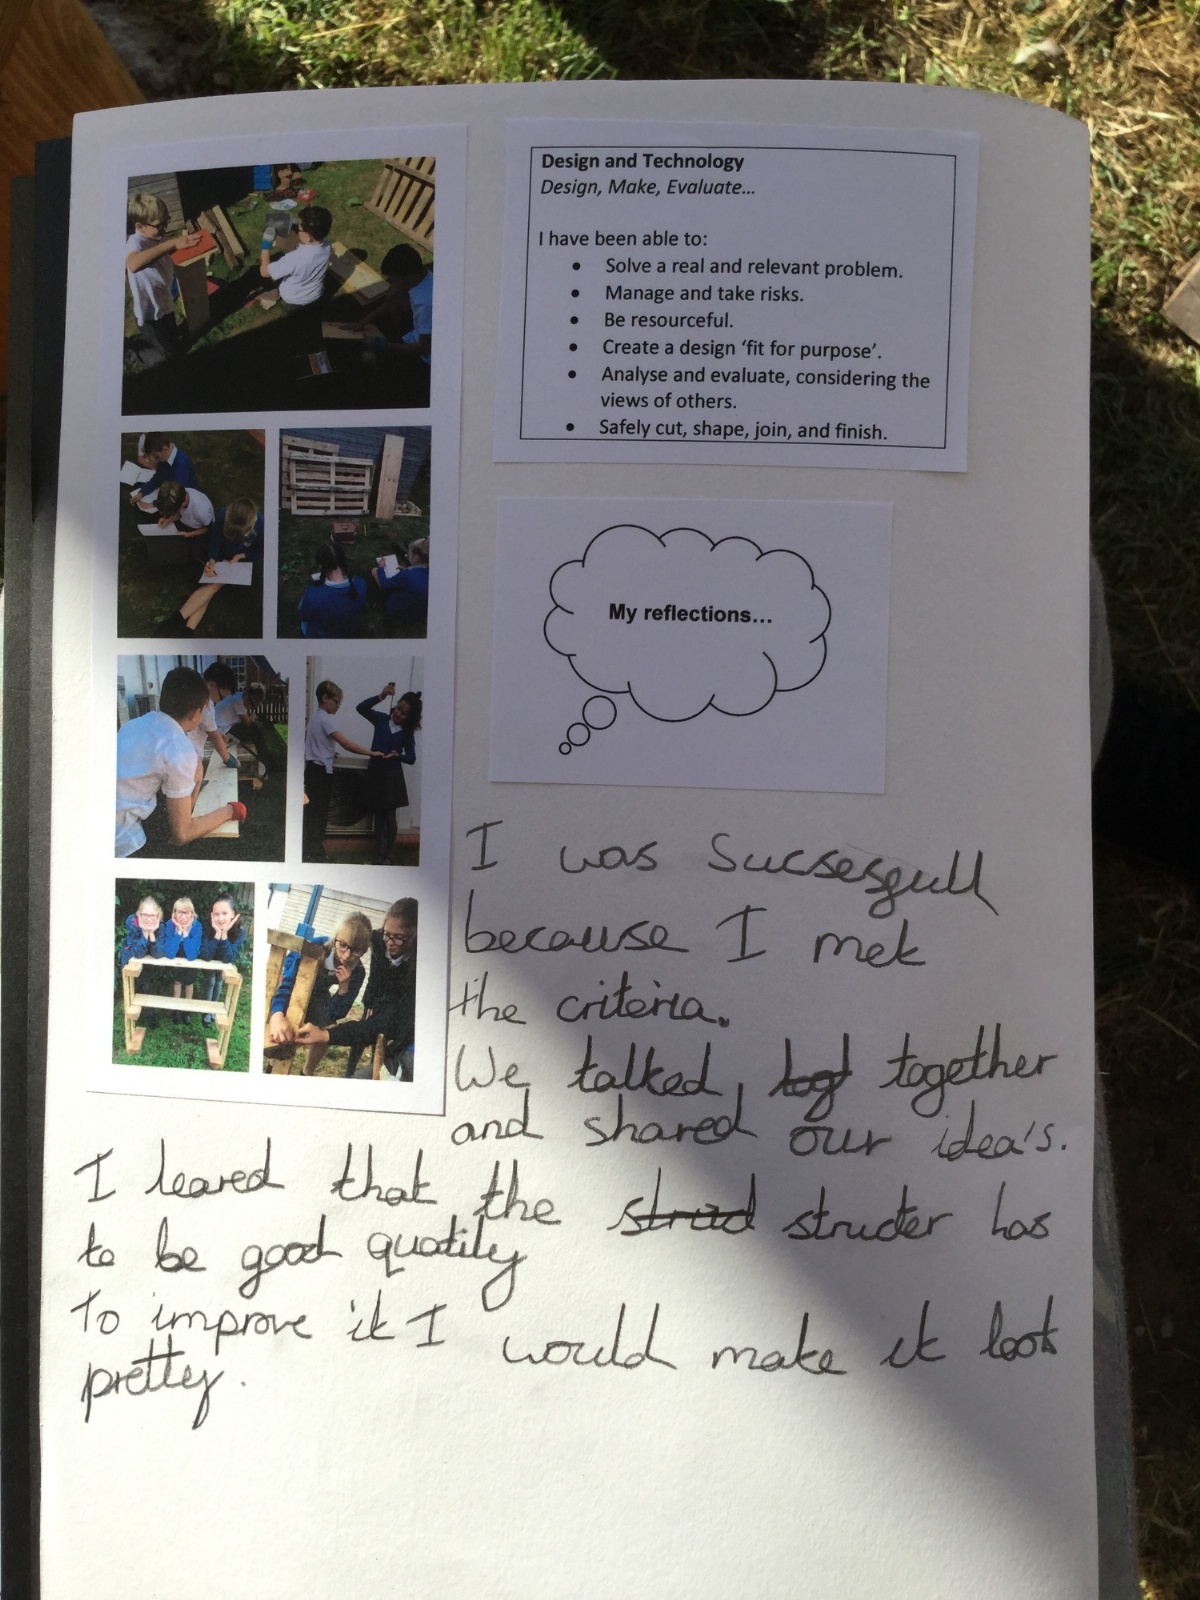 Design and Technology
Design, Make, Evaluate...
I have been able to:
• Solve a real and relevant problem.
• Manage and take risks.
• Be resourceful.
• Create a design ‘fit for purpose’.
• Analyse and evaluate, considering the
views of others.
• Safely cut, shape, join, and finish.
My reflections...
I was Sucsesgull
because I met
the criteria.
We talked, tog together
and shared our idea's.
I leared that the strud structer has
to be good quatily
To improve it I would make it look
pretty.